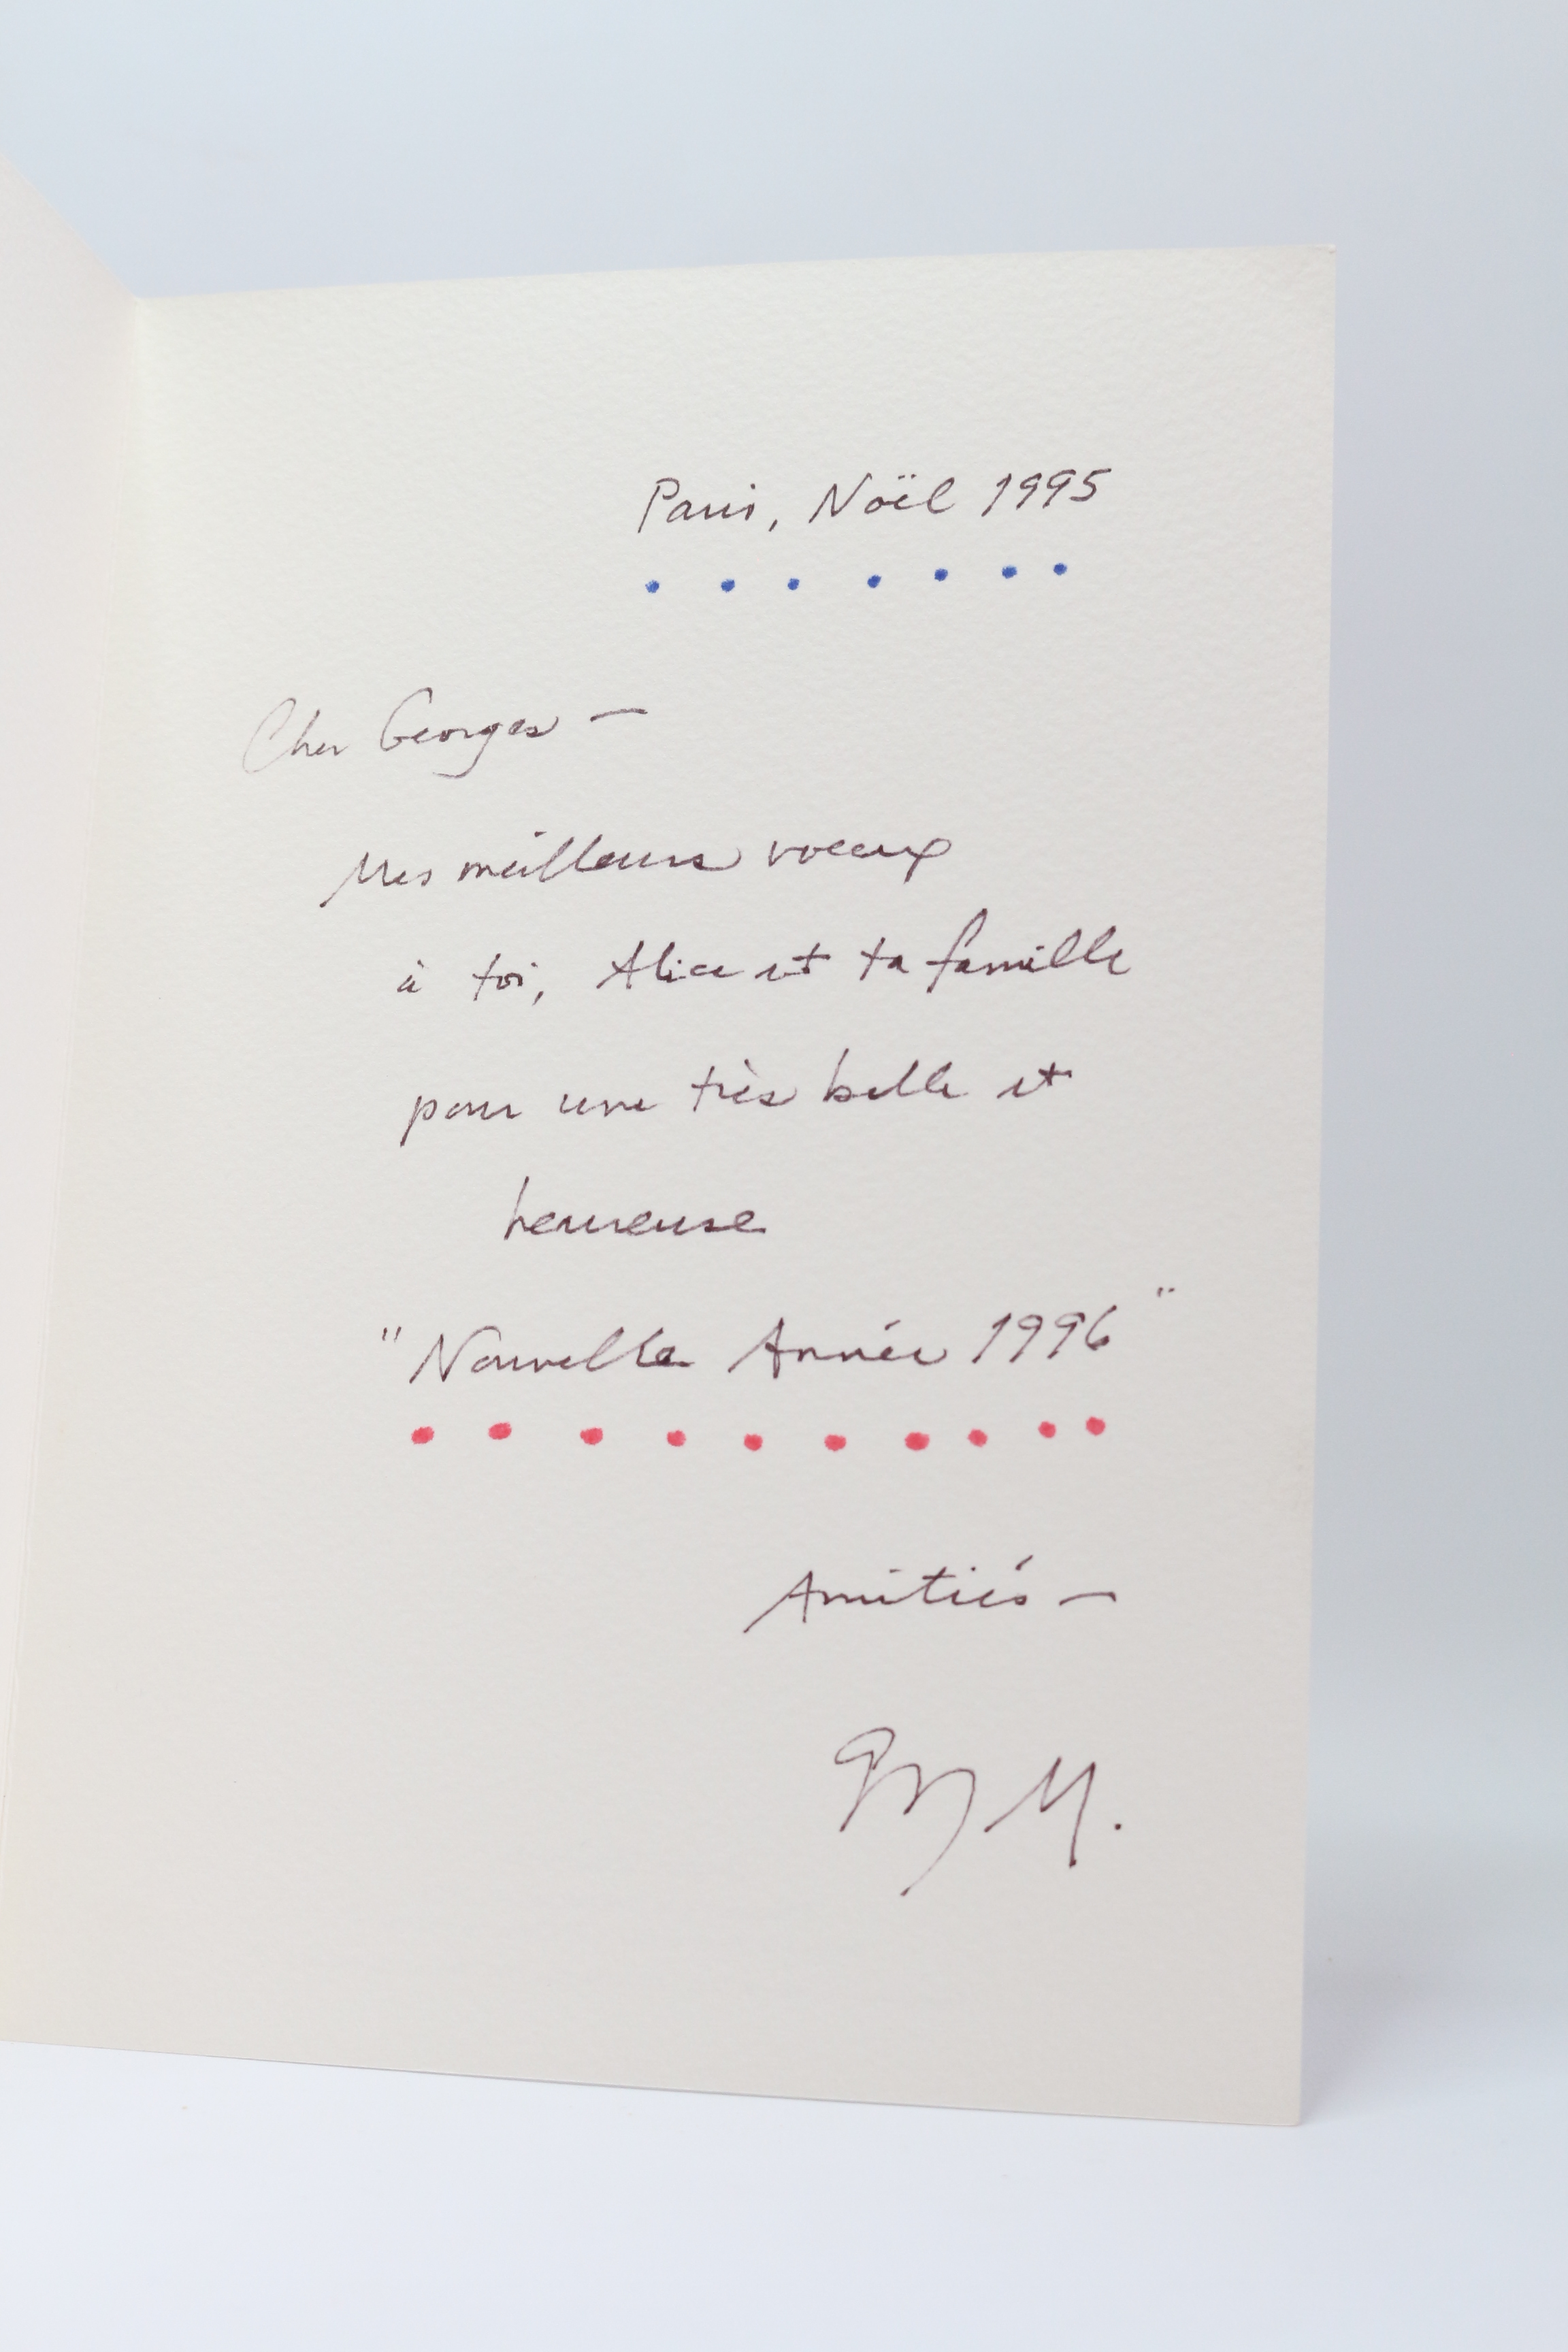 Paris, Noël 1995
Cher Georges —
Mes meilleurs voeux
à toi, Alice et ta famille
pour une très belle et
heureuse
"Nouvelle Année 1996"
Amitiés —
M.